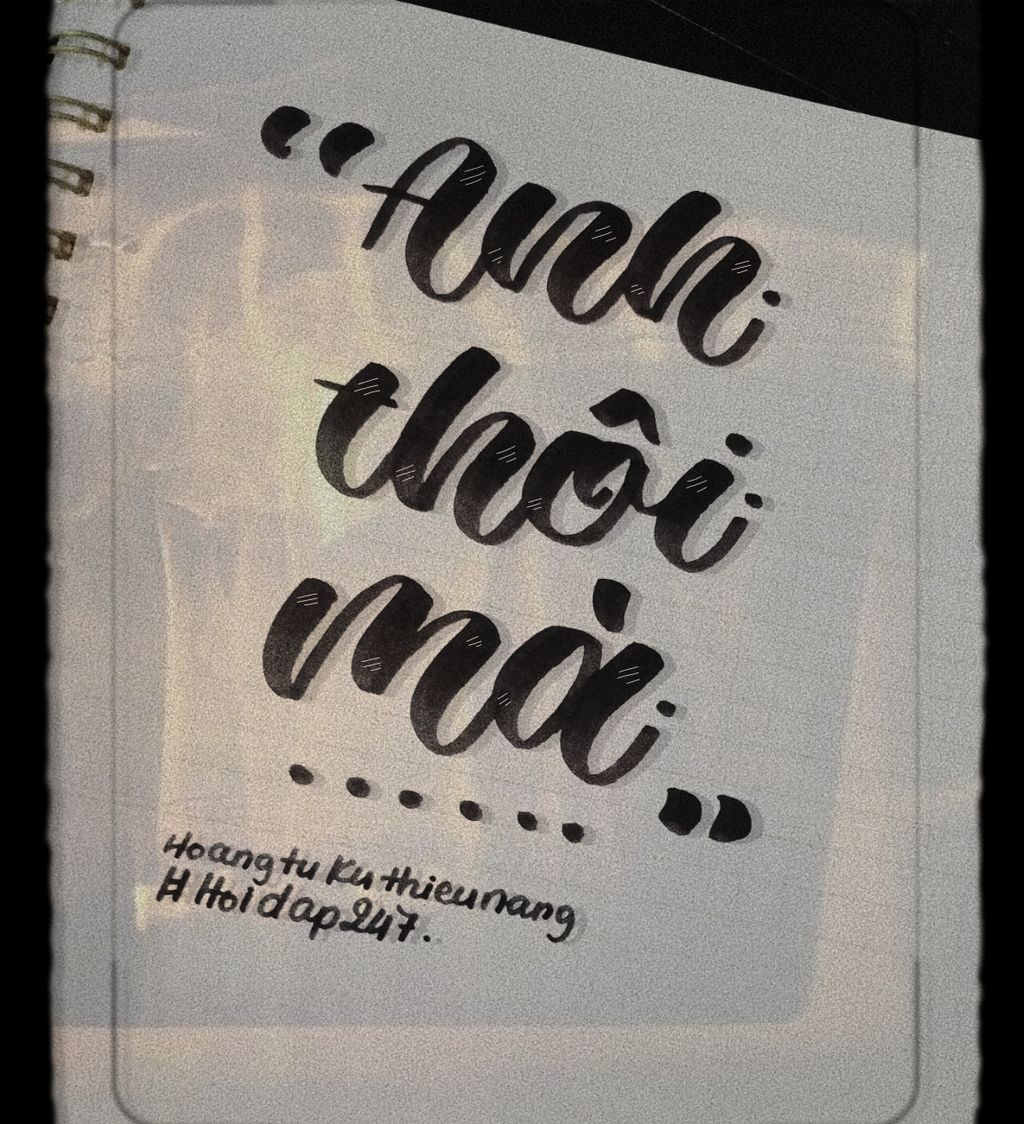 “Anh
thôi
mà
......”
Hoangtu Ku thieunang
# Hoidap247.